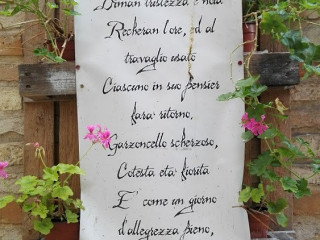 Diman tristezza e noia
Recheran l'ore, ed al
travaglio usato
Ciascuno in suo pensier
fara ritorno.
Garzoncello scherzoso,
Cotesta eta fiorita
E' come un giorno
d'allegrezza pieno,